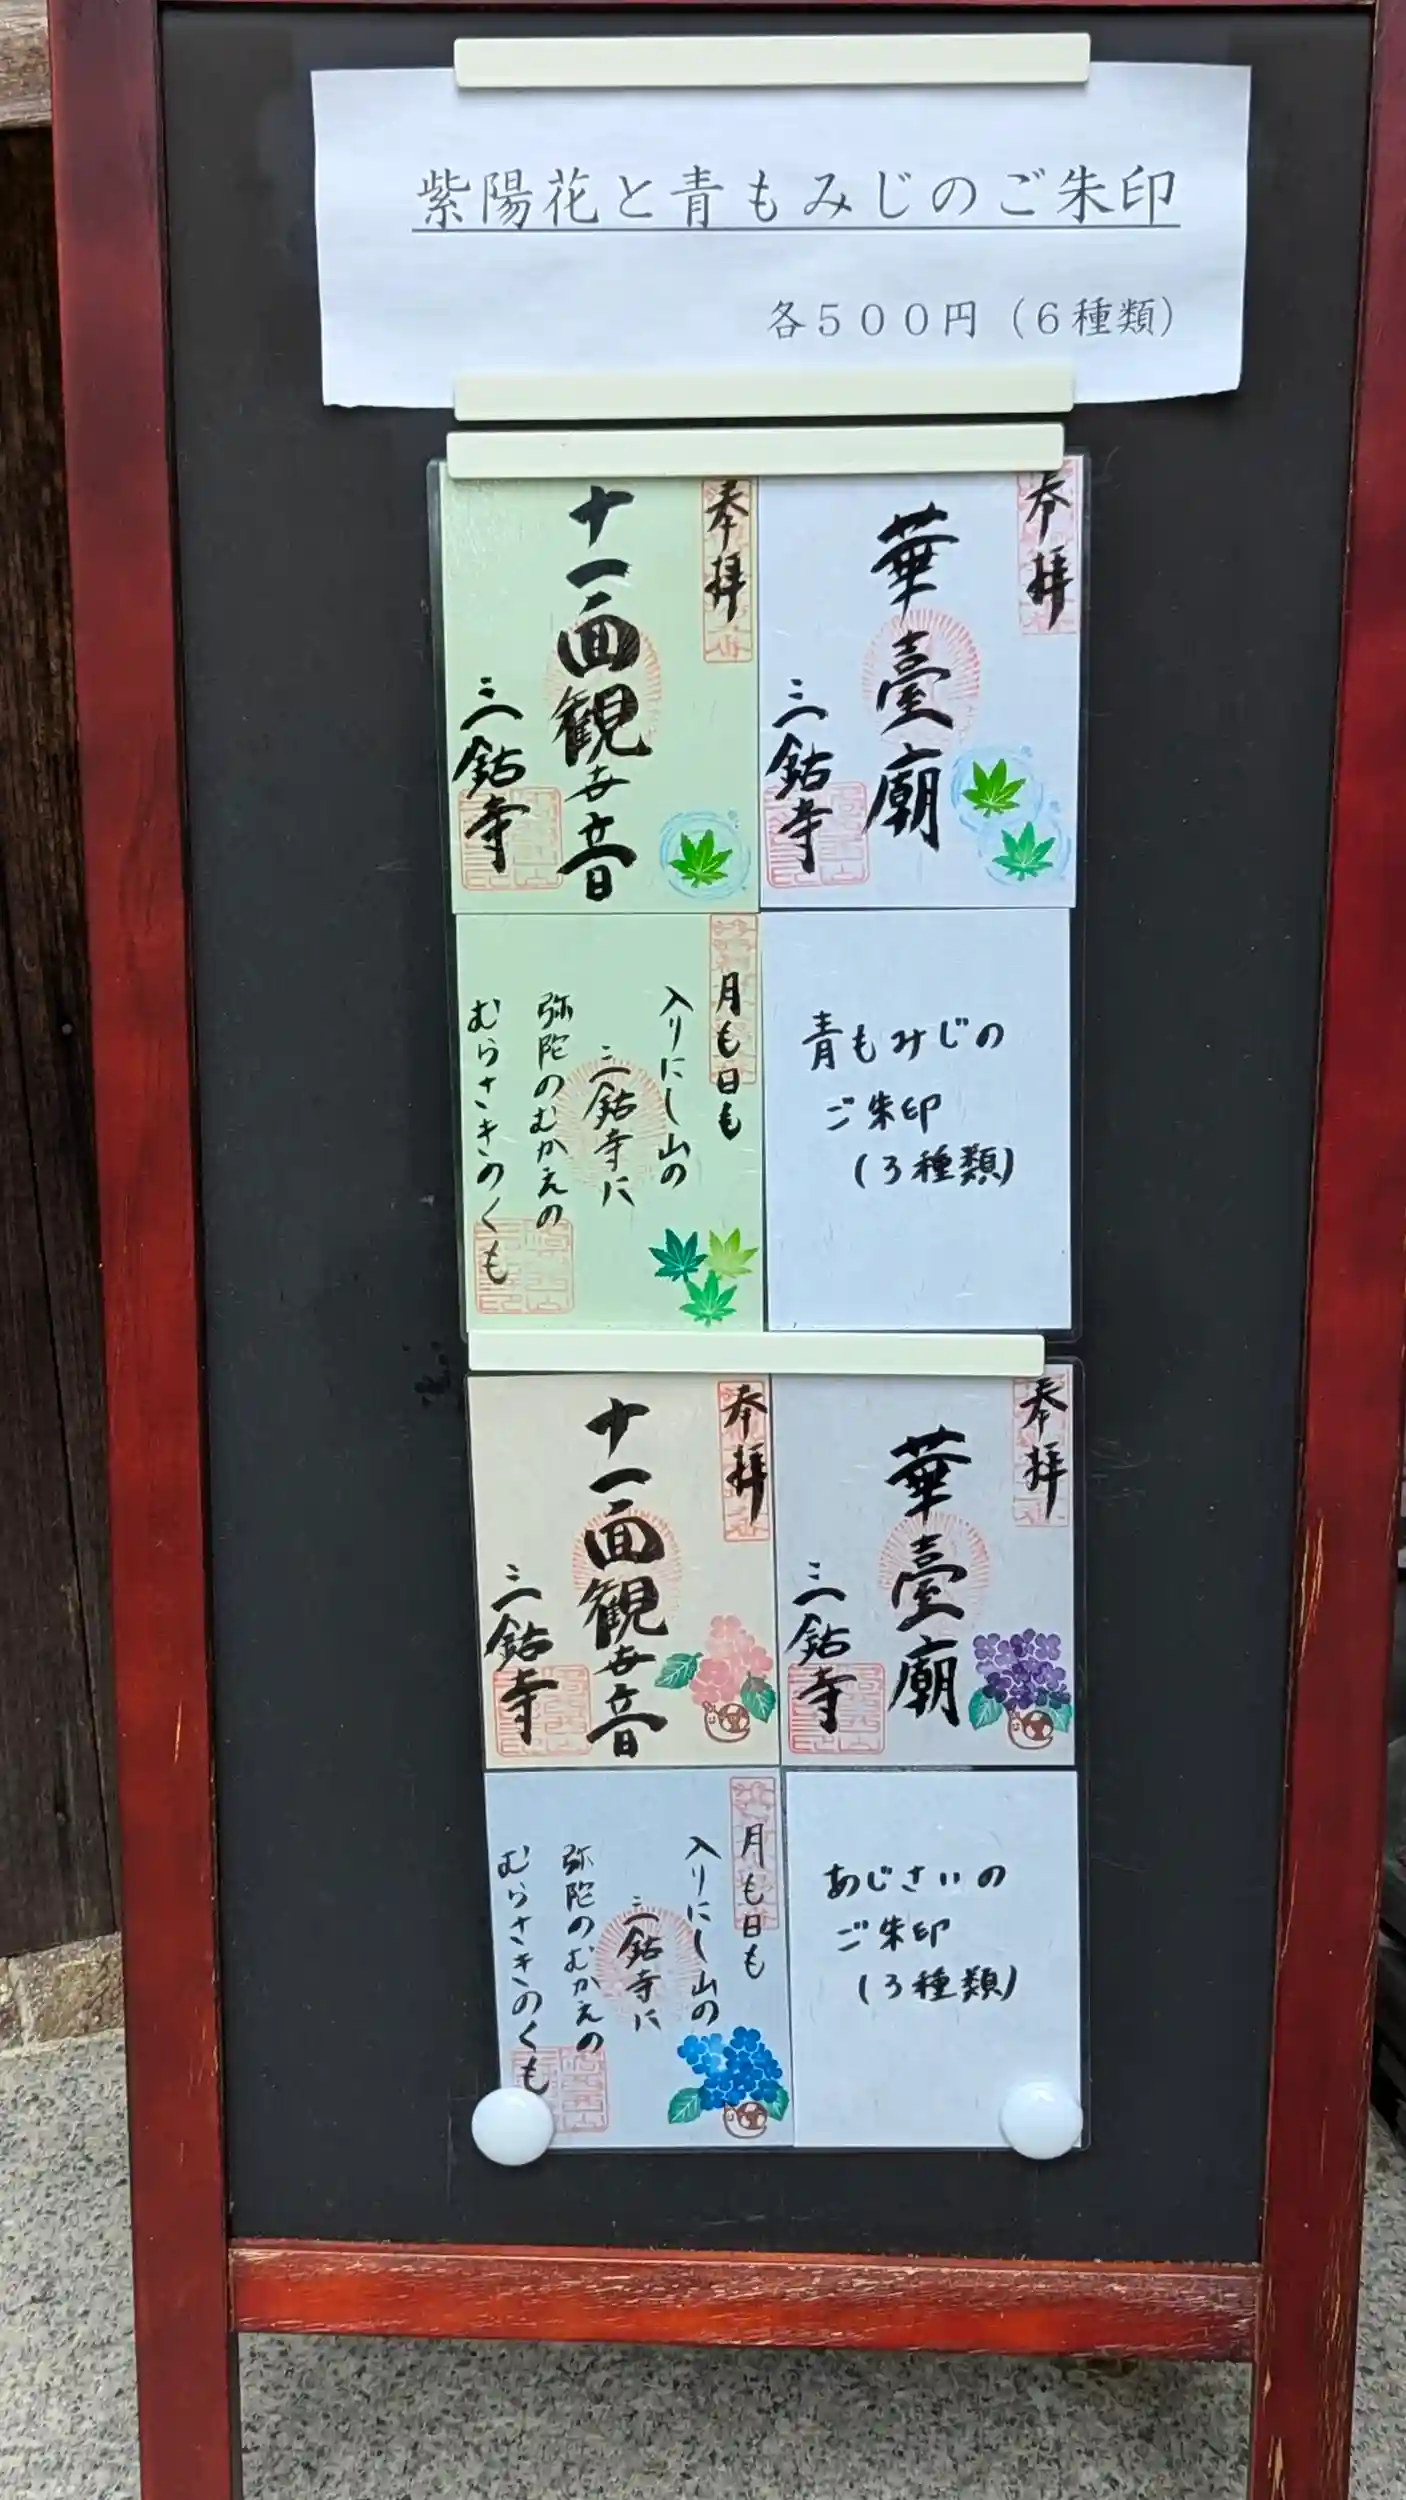 紫陽花と青もみじのご朱印
各５００円（６種類）
奉拝
華臺廟
三鈷寺
奉拝
十一面観世音
三鈷寺
月も日も
入りにし山の
三鈷寺に
弥陀のむかえの
むらさきのくも
青もみじの
ご朱印
(3種類)
奉拝
華臺廟
三鈷寺
奉拝
十一面観世音
三鈷寺
月も日も
入りにし山の
三鈷寺に
弥陀のむかえの
むらさきのくも
あじさいの
ご朱印
(3種類)